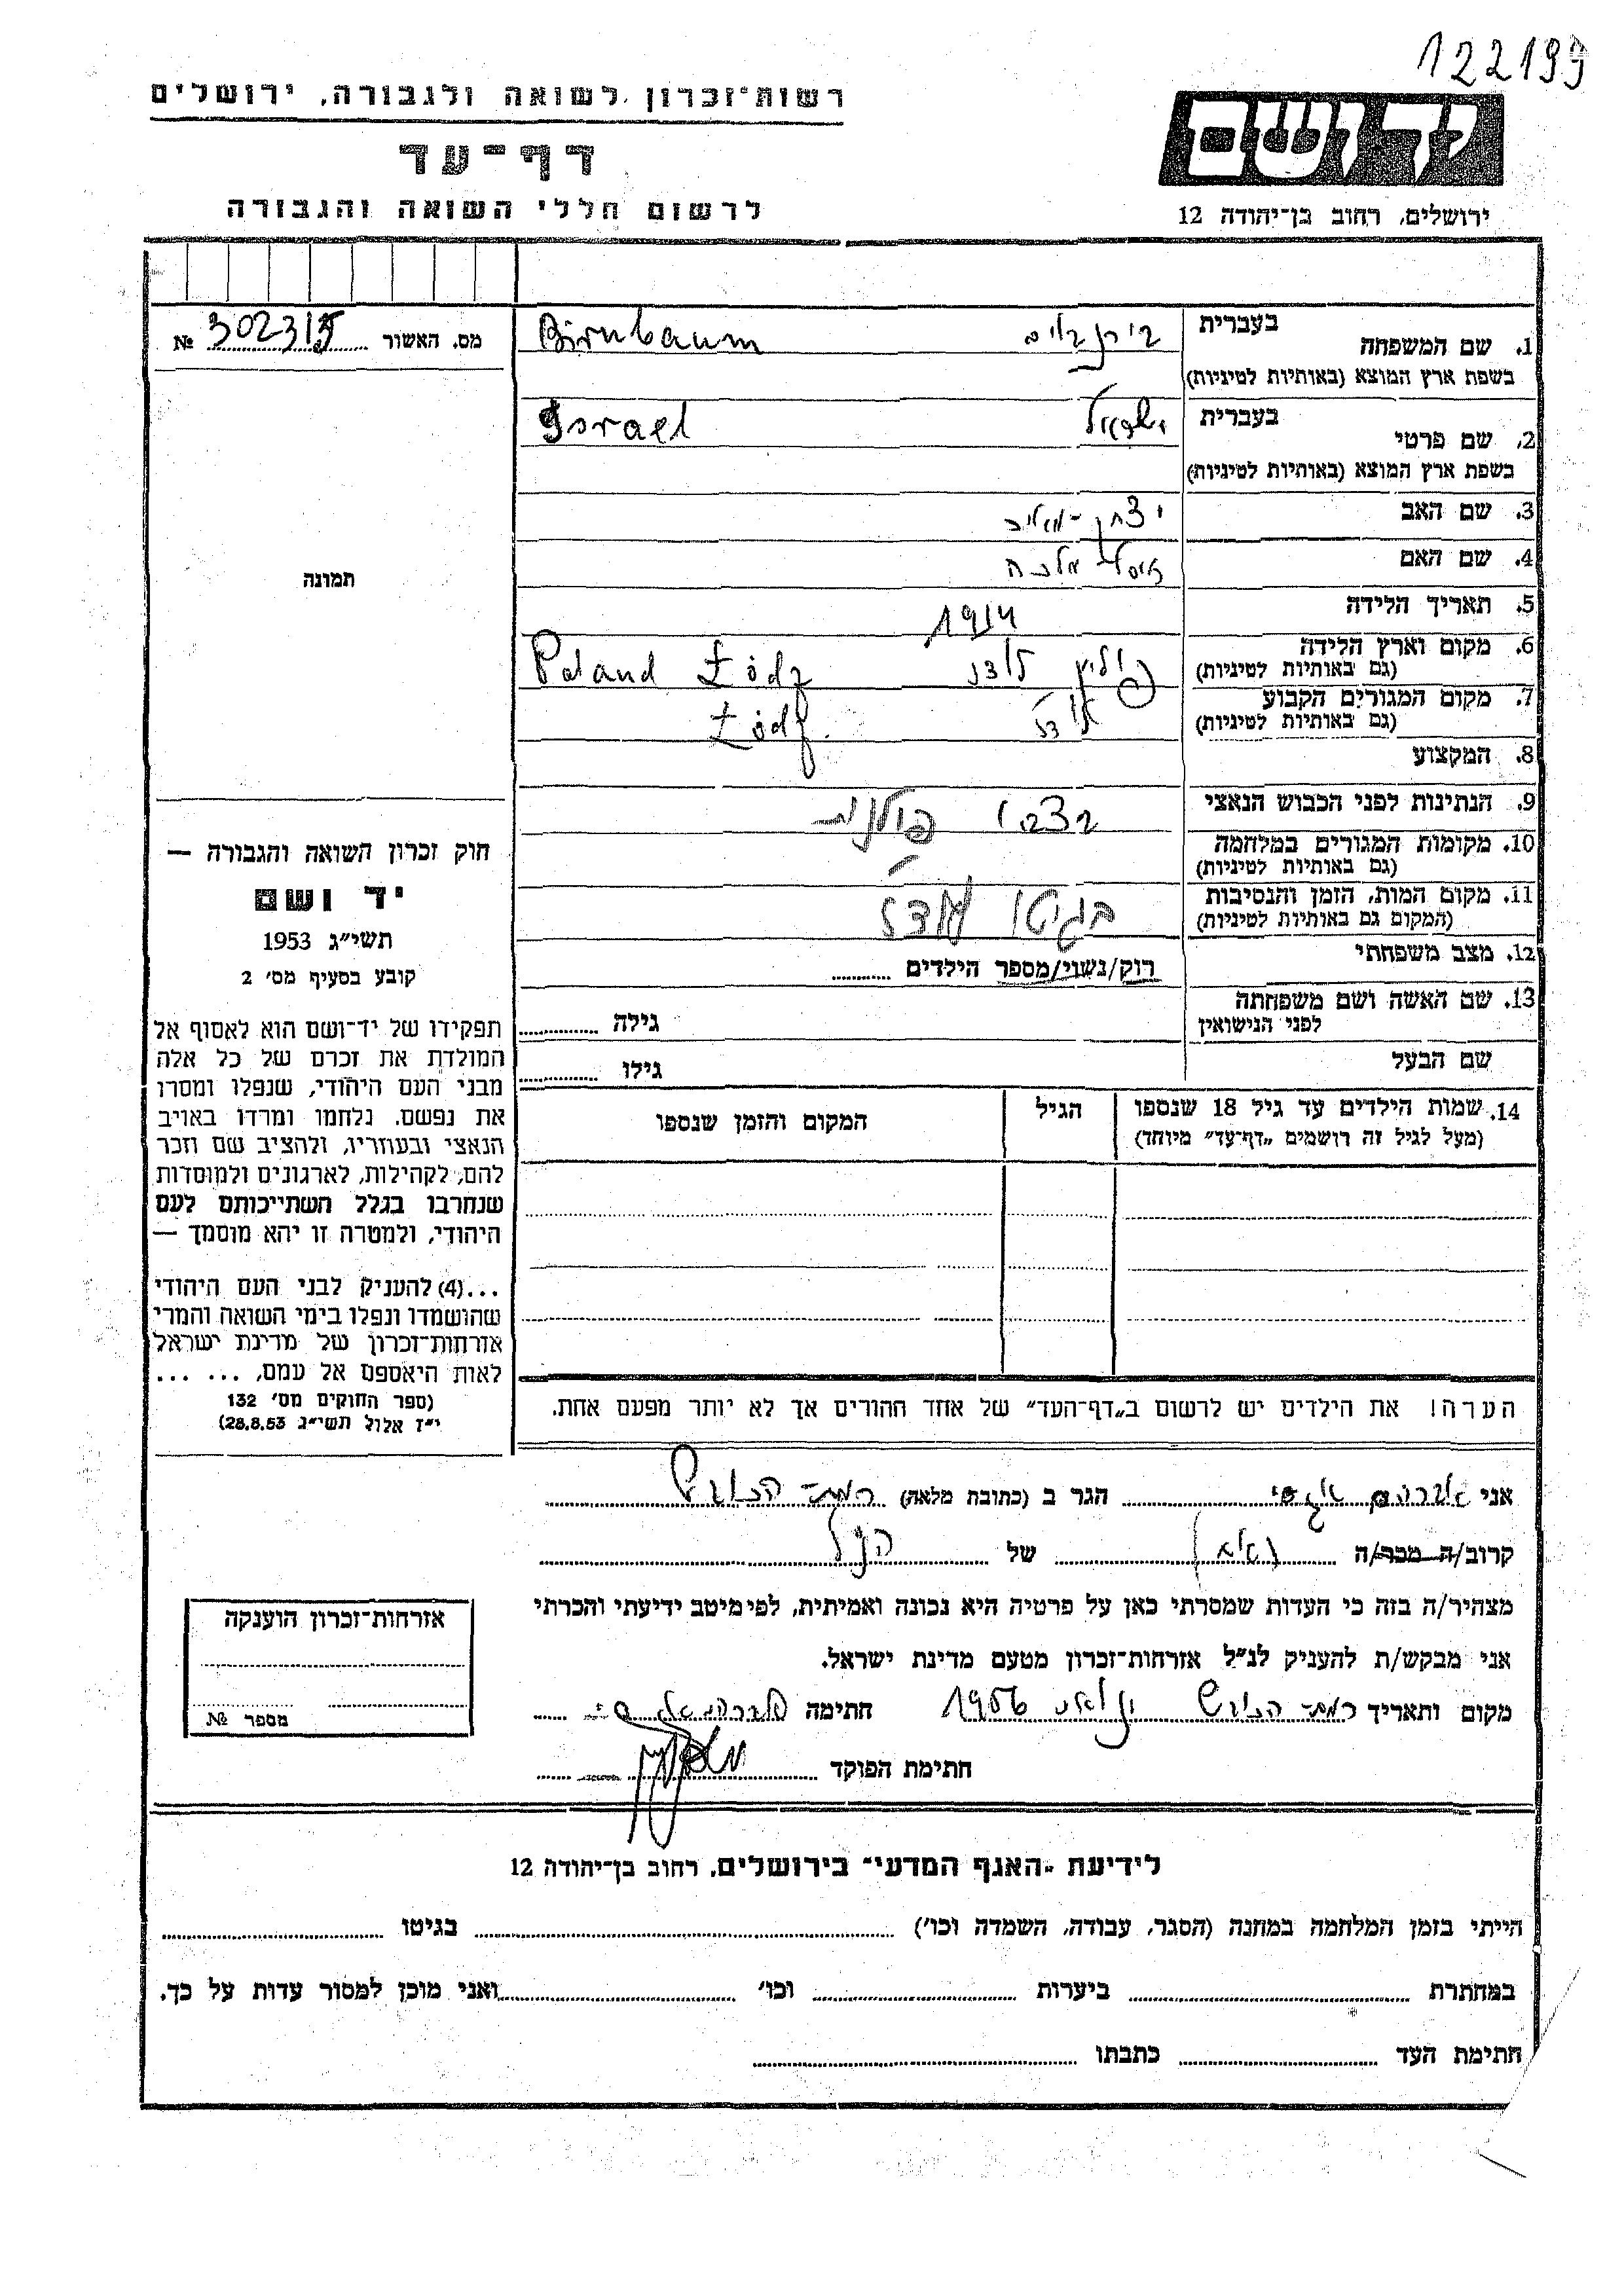 122199
רשות־זכרון לשואה ולגבורה, ירושלים
יד ושם
דף־עד
לרשום חללי השואה והגבורה
ירושלים, רחוב בן־יהודה 12
מס. האשור 302315 №
1. שם המשפחה בעברית בירנבוים Birnbaum
בשפת ארץ המוצא (באותיות לטיניות)
2. שם פרטי בעברית ישראל Israel
בשפת ארץ המוצא (באותיות לטיניות)
3. שם האב יצחק-
4. שם האם מלכה
5. תאריך הלידה 1914
6. מקום וארץ הלידה פולין לודז Poland Łódz
(גם באותיות לטיניות)
7. מקום המגורים הקבוע לודז Łódz
(גם באותיות לטיניות)
8. המקצוע
9. הנתינות לפני הכבוש הנאצי פולנית
10. מקומות המגורים במלחמה
(גם באותיות לטיניות)
11. מקום המות, הזמן והנסיבות בגיטו לודז
(המקום גם באותיות לטיניות)
12. מצב משפחתי רוק/נשוי/מספר הילדים
13. שם האשה ושם משפחתה גילה
לפני הנישואין
שם הבעל גילו
תמונה
חוק זכרון השואה והגבורה —
יד ושם
תשי״ג 1953
קובע בסעיף מס׳ 2
תפקידו של יד־ושם הוא לאסוף אל
המולדת את זכרם של כל אלה
מבני העם היהודי, שנפלו ומסרו
את נפשם, נלחמו ומרדו באויב
הנאצי ובעוזריו, ולהציב שם וזכר
להם, לקהילות, לארגונים ולמוסדות
שנחרבו בגלל השתייכותם לעם
היהודי, ולמטרה זו יהא מוסמך —
...(4) להעניק לבני העם היהודי
שהושמדו ונפלו בימי השואה והמרי
אזרחות־זכרון של מדינת ישראל
לאות היאספם אל עמם, ... ...
(ספר החוקים מס׳ 132
י״ז אלול תשי״ג 28.8.53)
14. שמות הילדים עד גיל 18 שנספו הגיל המקום והזמן שנספו
(מעל לגיל זה רושמים „דף־עד” מיוחד)
הערה! את הילדים יש לרשום ב„דף־העד” של אחד ההורים אך לא יותר מפעם אחת.
אני אברהם הגר ב (כתובת מלאה) רמת- הכובש
קרוב/ה מכר/ה של הנ"ל
מצהיר/ה בזה כי העדות שמסרתי כאן על פרטיה היא נכונה ואמיתית, לפי מיטב ידיעתי והכרתי
אני מבקש/ת להעניק לנ״ל אזרחות־זכרון מטעם מדינת ישראל.
מקום ותאריך רמת- הכובש 1956 חתימה
חתימת הפוקד
אזרחות־זכרון הוענקה
מספר №
לידיעת „האגף המדעי” בירושלים, רחוב בן־יהודה 12
הייתי בזמן המלחמה במחנה (הסגר, עבודה, השמדה וכו׳) בגיטו
במחתרת ביערות וכו׳ ואני מוכן למסור עדות על כך.
חתימת העד כתבתו